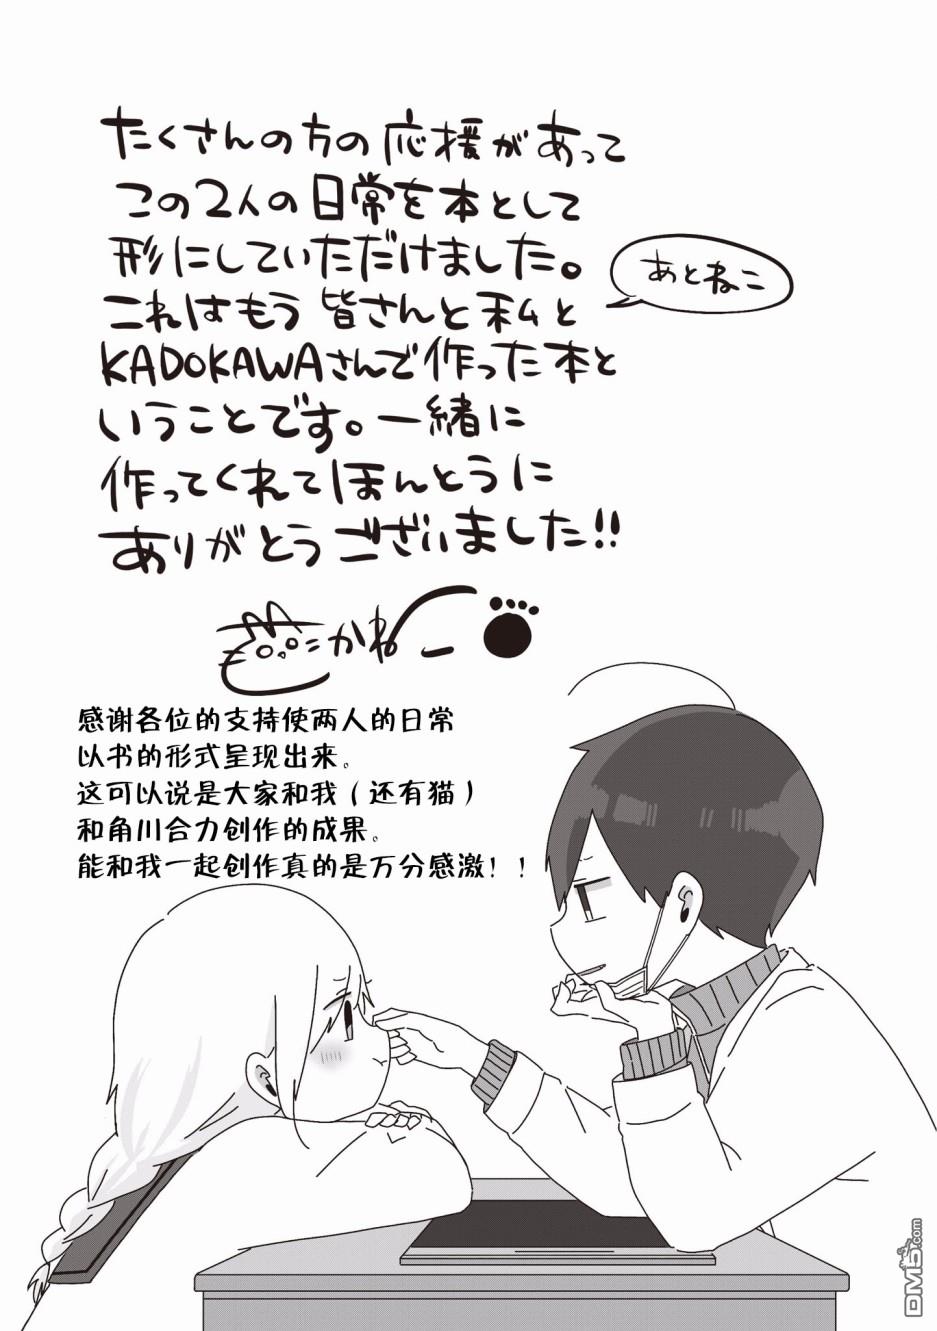 たくさんの方の応援があって
この2人の日常を本として
形にしていただけました。
これはもう皆さんと私と
あとねこ
KADOKAWAさんで作った本と
いうことです。一緒に
作ってくれてほんとうに
ありがとうございました!!
かね
感谢各位的支持使两人的日常
以书的形式呈现出来。
这可以说是大家和我（还有猫）
和角川合力创作的成果。
能和我一起创作真的是万分感激！！
DM5.com